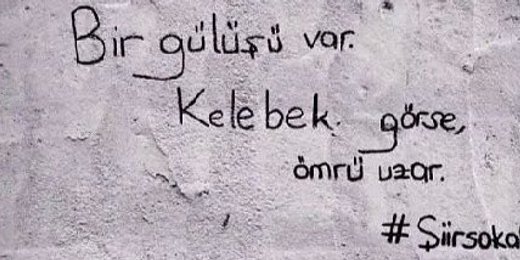 Bir gülüşü var.
Kelebek. görse,
ömrü uzar.
#Şiirsoka